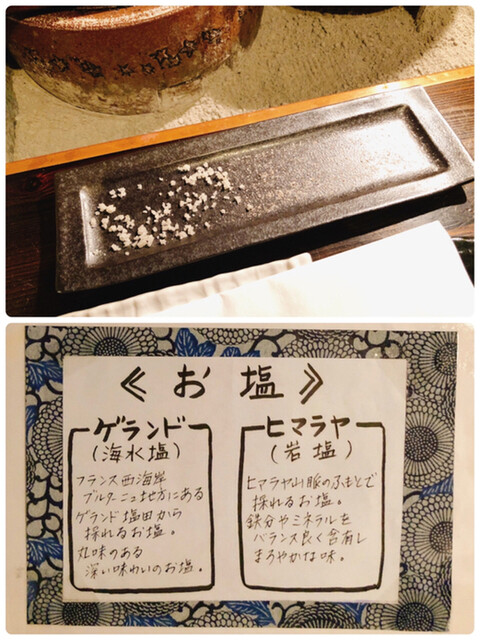 《お塩》
ゲランド
(海水塩)
フランス西海岸
ブルターニュ地方にある
ゲランド塩田から
採れるお塩。
丸味のある
深い味わいのお塩。
ヒマラヤ
(岩塩)
ヒマラヤ山脈のふもとで
採れるお塩。
鉄分やミネラルを
バランス良く含有し
まろやかな味。